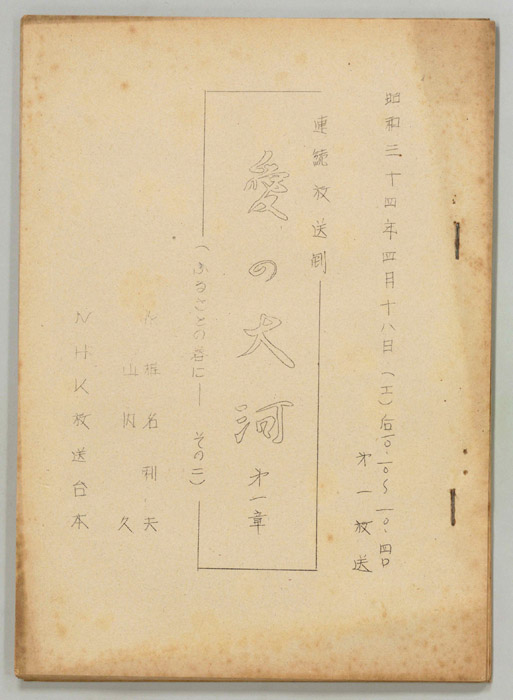 昭和三十四年四月十八日(土)后一〇・一〇〜一〇・四〇
第一放送
連続放送劇
愛の大河 第一章
(ふるさとの君に── その二)
椎名利夫
山内 久
NHK放送台本